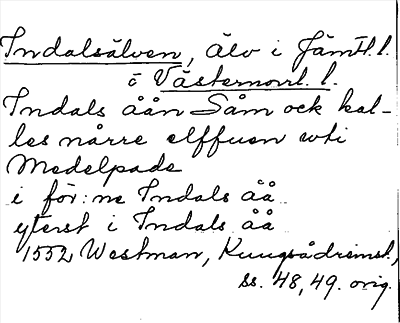 Indalsälven, älv i Jämtl. l.
o Västernorrl. l.
Indals åån Såm ock kal-
les nårre elffuen uti
Medelpade
i för:ne Indals åå
ytterst i Indals åå
1552 Westman, Kungsådreinst.,
ss. 48, 49. orig.